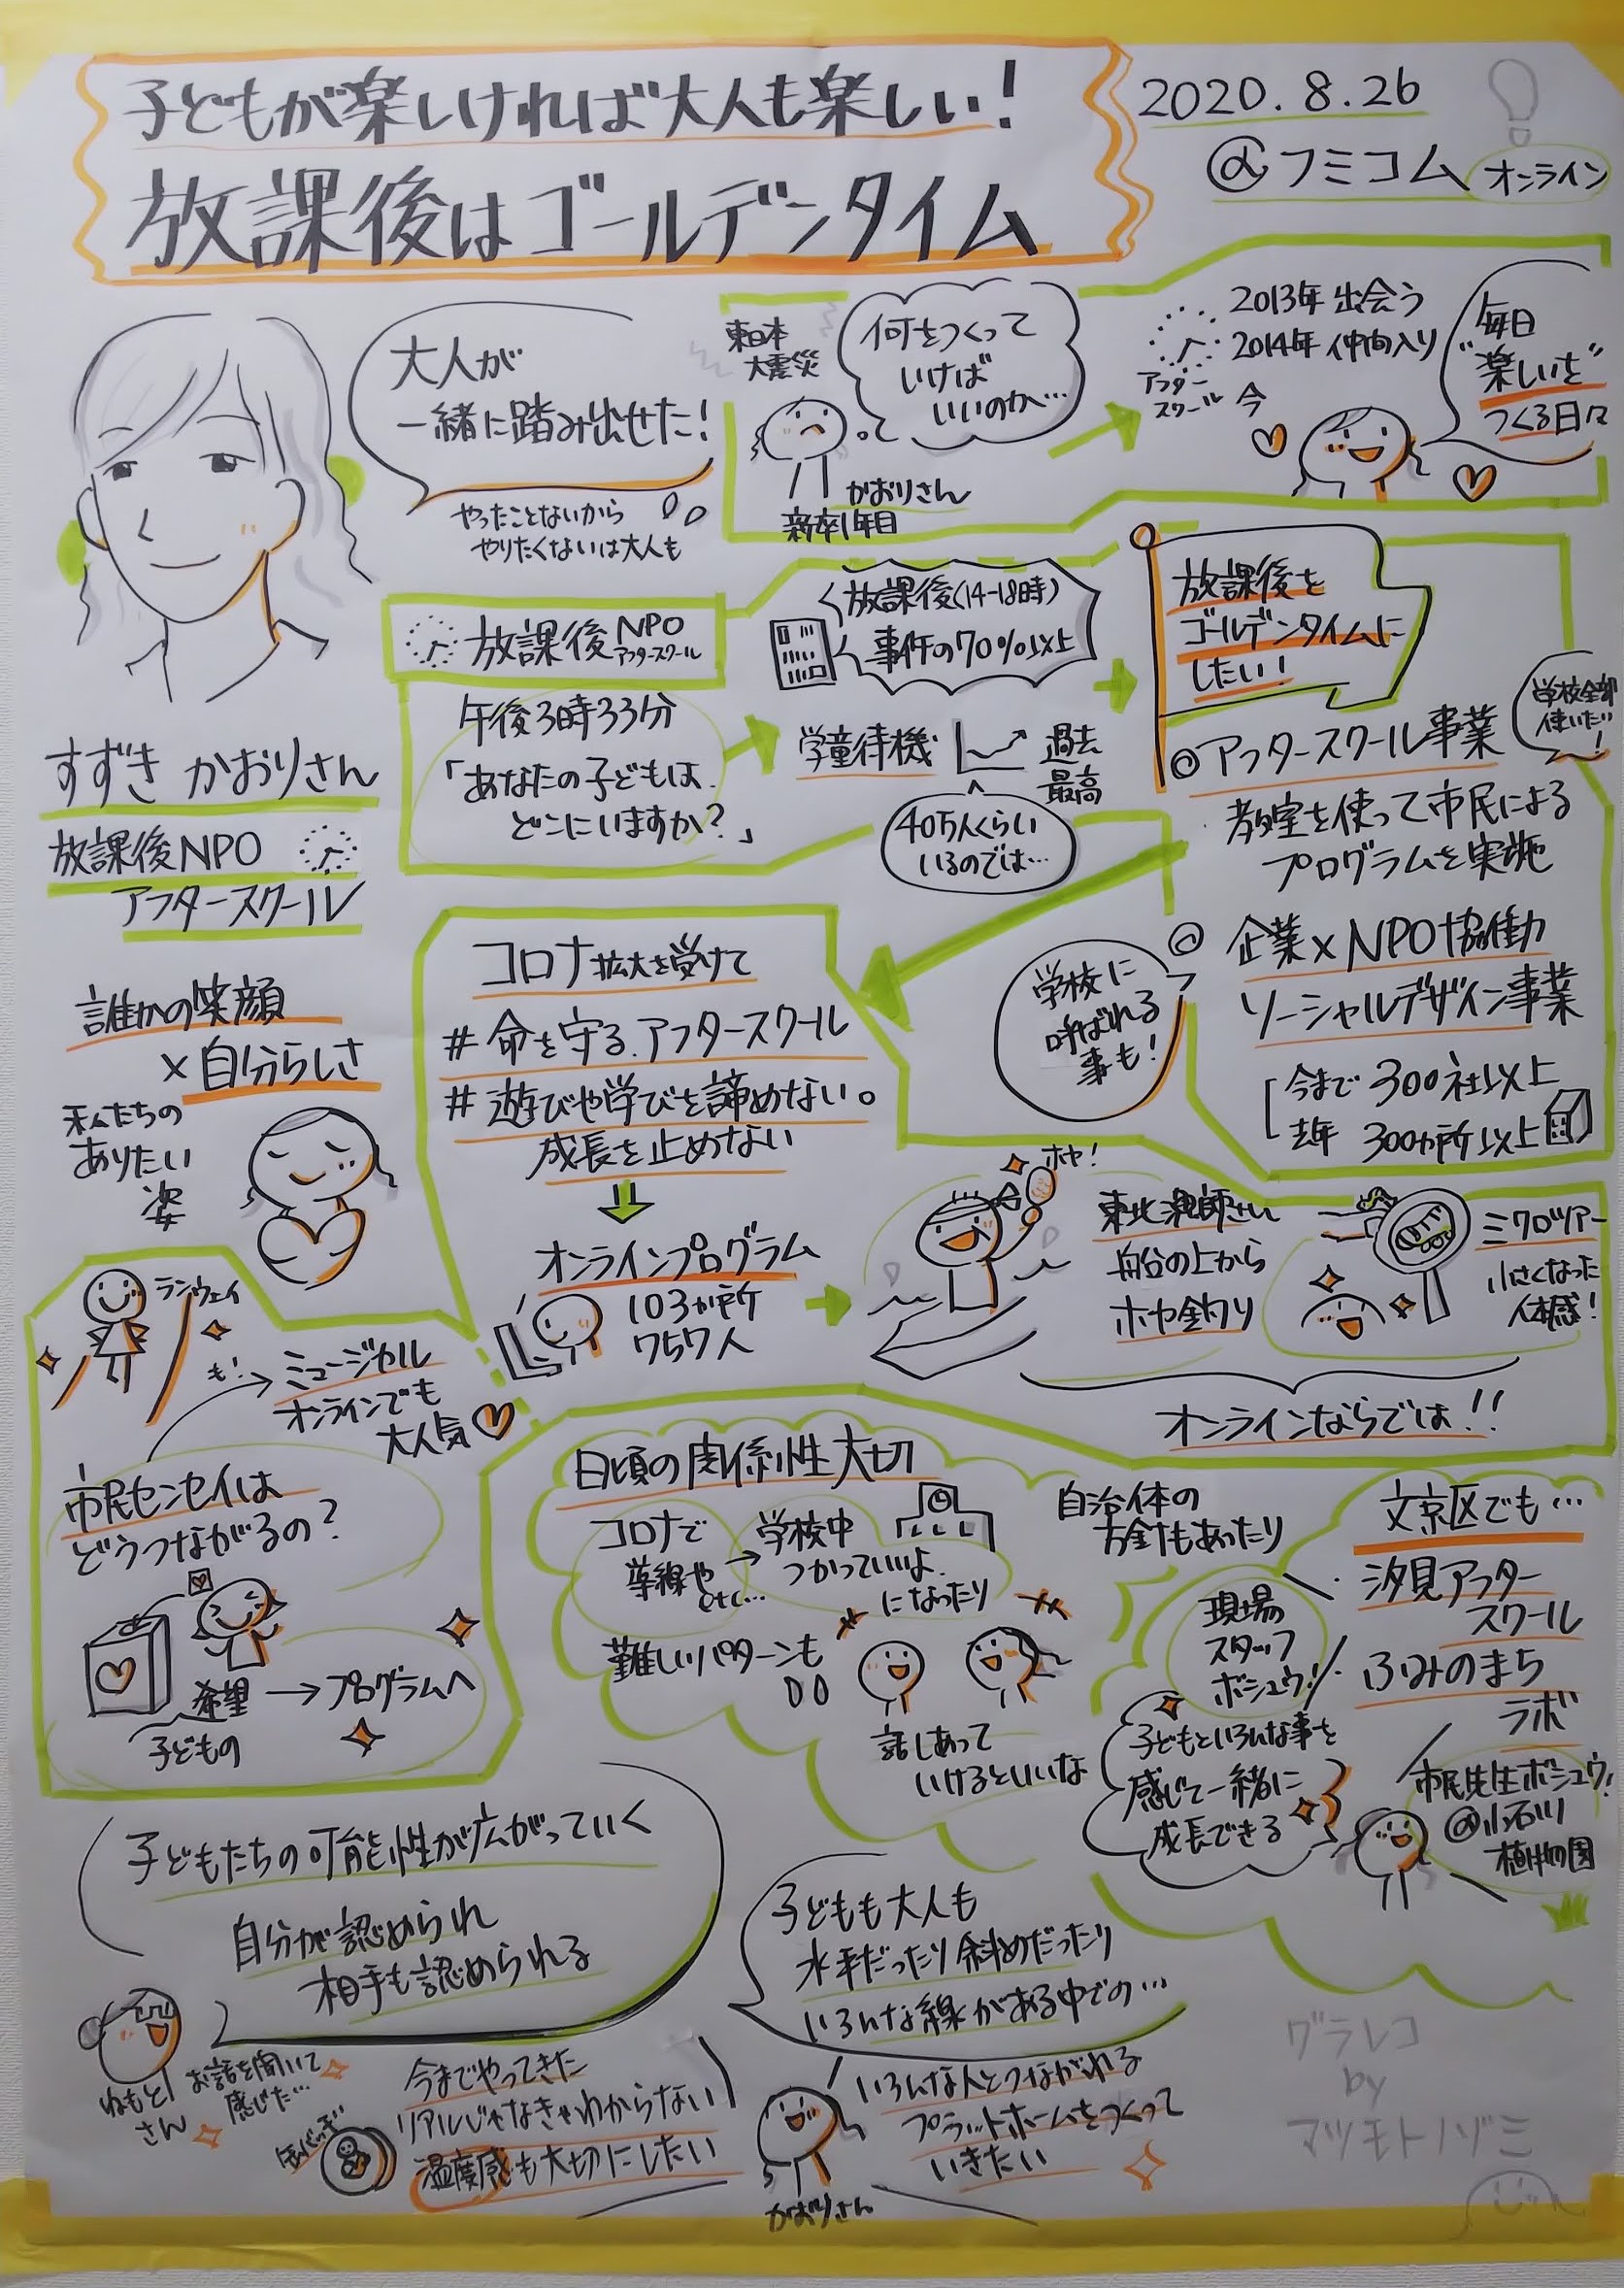 子どもが楽しければ大人も楽しい!
放課後はゴールデンタイム
2020.8.26
@フミコム オンライン
大人が
一緒に踏み出せた!
やったことないから
やりたくないは大人も
東日本
大震災
何をつくって
いけば
いいのか…
かおりさん
新卒1年目
アフター
スクール
2013年 出会う
2014年 仲間入り
今
毎日
"楽しいを"
つくる日々
すずき かおりさん
放課後NPO
アフタースクール
誰かの笑顔
×自分らしさ
私たちの
ありたい
姿
放課後NPO
アフタースクール
午後3時33分
「あなたの子どもは
どこにいますか?」
放課後(14-18時)
事件の70%以上
学童待機
過去
最高
40万人くらい
いるのでは…
放課後を
ゴールデンタイムに
したい!
◎アフタースクール事業
学校全部
使いたい
!
教室を使って市民による
プログラムを実施
◎ 企業×NPO協働
ソーシャルデザイン事業
学校に
呼ばれる
事も!
今まで 300社以上
去年 300カ所以上
コロナ拡大を受けて
#命を守る.アフタースクール
#遊びや学びを諦めない。
成長を止めない
オンラインプログラム
103か所
757人
ホヤ!
東北漁師さん
船の上から
ホヤ釣り
ミクロツアー
小さくなった
体感!
オンラインならでは!!
ランウェイ
も!
ミュージカル
オンラインでも
大人気
市民センセイは
どうつながるの?
希望
子どもの
→プログラムへ
日頃の関係性大切
コロナで
導線や
etc…
→学校中
つかっていいよ
になったり
難しいパターンも
話しあって
いけるといいな
自治体の
方針もあったり
文京区でも…
汐見アフター
スクール
ふみのまち
ラボ
現場の
スタッフ
ボシュウ!
子どもといろんな事を
感じて一緒に
成長できる
市民先生ボシュウ!
@小石川
植物園
子どもたちの可能性が広がっていく
自分が認められ
相手も認められる
ねもと
さん
お話を聞いて
感じた…
子どもも大人も
水平だったり斜めだったり
いろんな線がある中での…
缶バッヂ
今までやってきた
リアルじゃなきゃわからない
温度感も大切にしたい
いろんな人とつながれる
プラットホームをつくって
いきたい
かおりさん
グラレコ
by
マツモトノゾミ